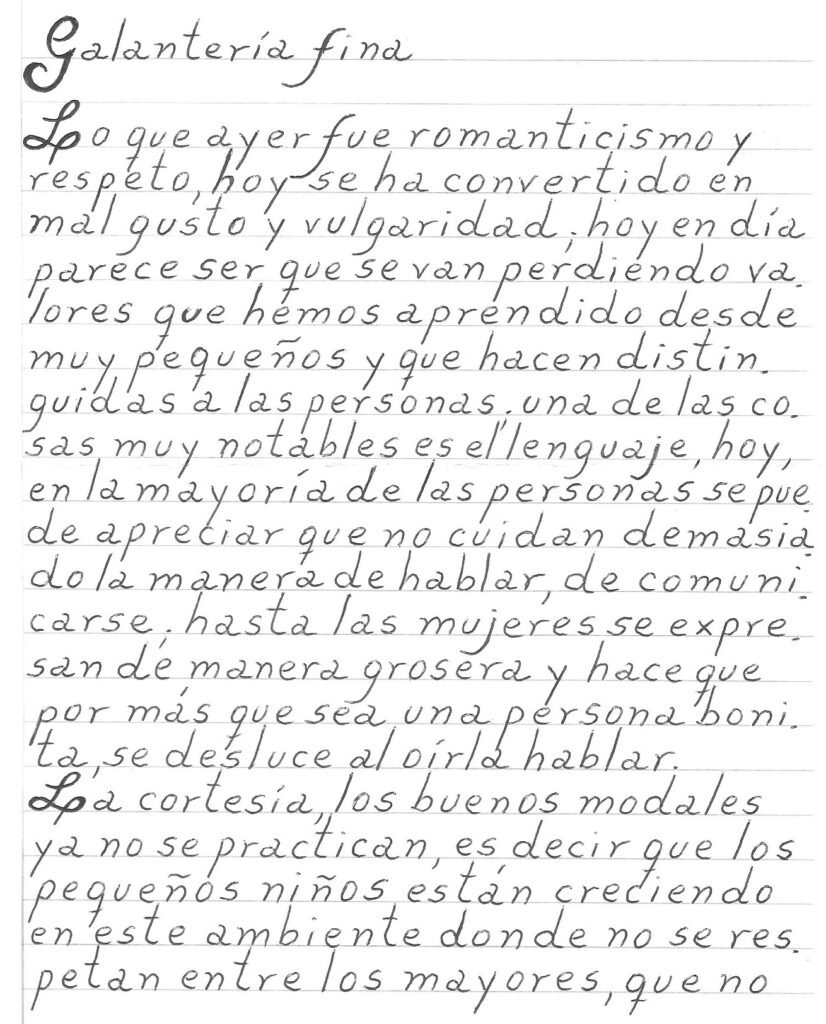 Galantería fina
Lo que ayer fue romanticismo y
respeto, hoy se ha convertido en
mal gusto y vulgaridad; hoy en día
parece ser que se van perdiendo va.
lores que hemos aprendido desde
muy pequeños y que hacen distin.
guidas a las personas. una de las co.
sas muy notables es el lenguaje, hoy,
en la mayoría de las personas se pue.
de apreciar que no cuidan demasia.
do la manera de hablar, de comuni.
carse; hasta las mujeres se expre.
san de manera grosera y hace que
por más que sea una persona boni.
ta, se desluce al oírla hablar.
La cortesía, los buenos modales
ya no se practican, es decir que los
pequeños niños están creciendo
en este ambiente donde no se res.
petan entre los mayores, que no